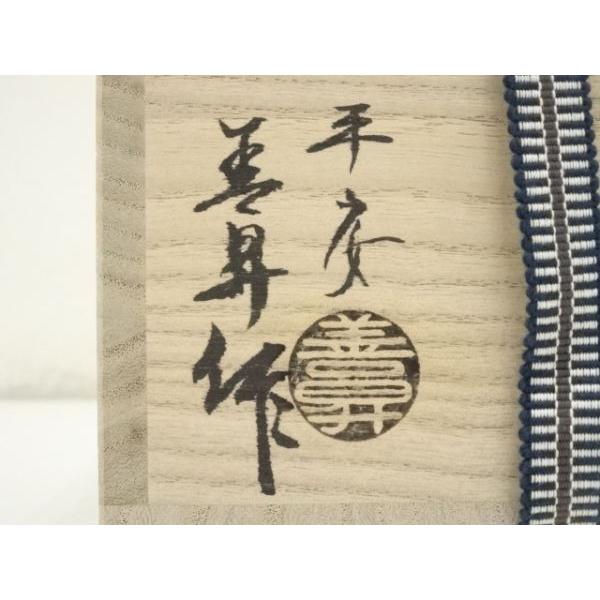 平安
善昇作
善昇